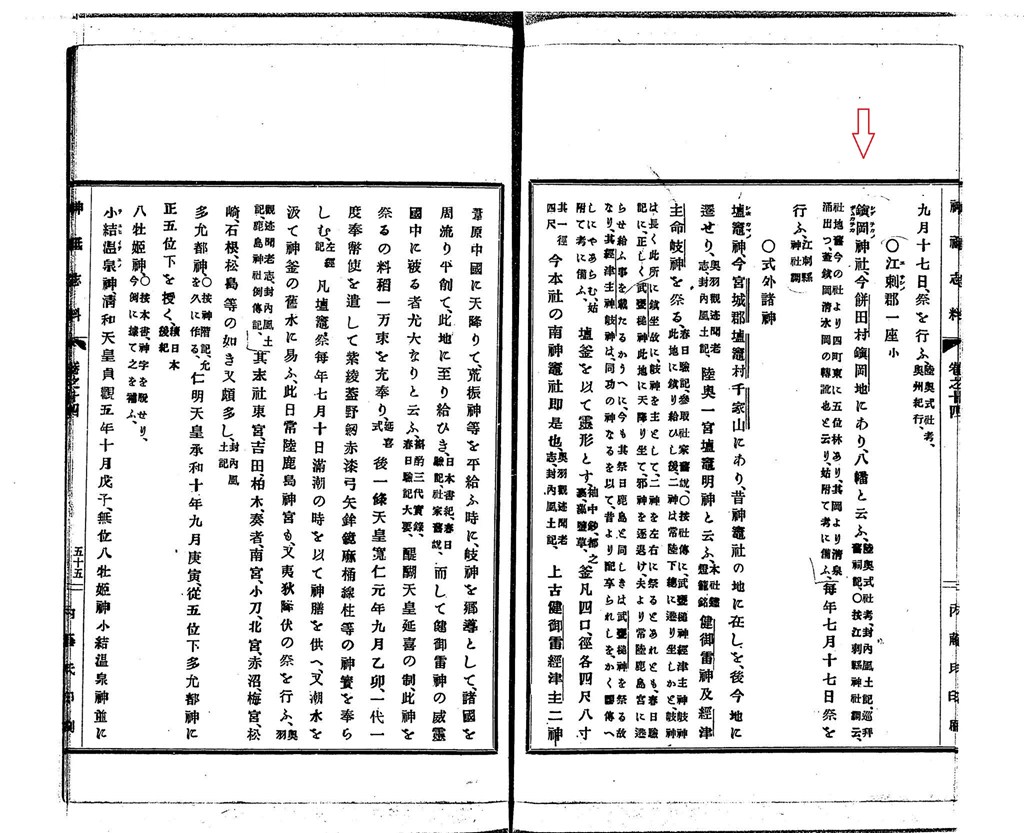 九月十七日、祭を行ふ、陸奥式社考、奥州紀行、
〇江刺郡一座 小
鎭岡神社、今餅田村鎭岡地にあり、八幡と云ふ、陸奥式社考、封内風土記、巡拜舊祠記、〇按江刺縣神社調云、
社地舊今の社より四町東に五位林あり、其岡より清泉涌出つ、蓋鎭岡清水岡の轉訛也と云り、姑附て考に備ふ、毎年七月十七日祭を
行ふ、江刺縣神社調
〇式外諸神
壚竈神、今宮城郡壚竈村千家山にあり、昔神竈社の地に在しを、後今地に
遷せり、奥羽觀迹聞老志、封内風土記、陸奥一宮壚竈明神と云ふ、本社鐘燈籠銘健御雷神及經津
主命岐神を祭る、春日驗記、參取社家舊説、〇按社傳に、武甕槌神經津主神岐神此地に鎭り給ひし後、二神は常陸下總に遷り坐しかと岐神
は長く此所に鎭坐故に、岐神を主として、二神を左右に祭るとあれとも、春日驗記に、正しく武甕槌神此地に天降り坐て、邪神を逐退け、夫より常陸鹿島宮に遷
らせ給ふ事を載たるかうへに、今も其祭日鹿島と同しきは武甕槌神を祭る故なり、其經津主神岐神は、同功の神なるを以て、昔より配享られしを、かく傳へ
しにやあらむ、姑附て考に備ふ、壚釜を以て靈形とす、袖中鈔、都之裹、藻鹽草、釜凡四口、徑各四尺八寸
其一徑四尺今本社の南神竈社即是也、奥羽觀迹聞老志、封内風土記、上古健御雷經津主二神
葦原中國に天降りて、荒振神等を平給ふ時に、岐神を郷導として、諸國を
周流り平削て、此地に至り給ひき、日本書紀、春日驗記、社家舊説、而して健御雷神の威靈
國中に被る者尤大なりと云ふ、斟酌三代實録、春日驗記大要、醍醐天皇延喜の制、此神を
祭るの料稻一万束を充奉り、延喜式後一條天皇寬仁元年九月乙卯、一代一
度奉幣使を遣して紫綾蓋野劔赤漆弓矢鉾鏡麻桶線柱等の神寶を奉ら
しむ、左經記凡壚竈祭毎年七月十日滿潮の時を以て神膳を供へ、又潮水を
汲て神釜の舊水に易ふ、此日常陸鹿島神宮も、又夷狄降伏の祭を行ふ、奥羽
觀迹聞老志、封内風土記、鹿島神社例傳記、其末社東宮、吉田、柏木、奏者、南宮、小刀、北宮、赤沼、梅宮、松
崎、石根、松島等の如き又頗多し、封内風土記
多允都神、〇按神階記、允を久に作る、仁明天皇承和十年九月庚寅、從五位下多允都神に
正五位下を授く、續日本後紀
八牡姬神、〇按本書、神字を脱せり、今例に據て之を補ふ、
小結温泉神、清和天皇貞觀五年十月戊子、無位八牡姬神小結温泉神並に
五十五